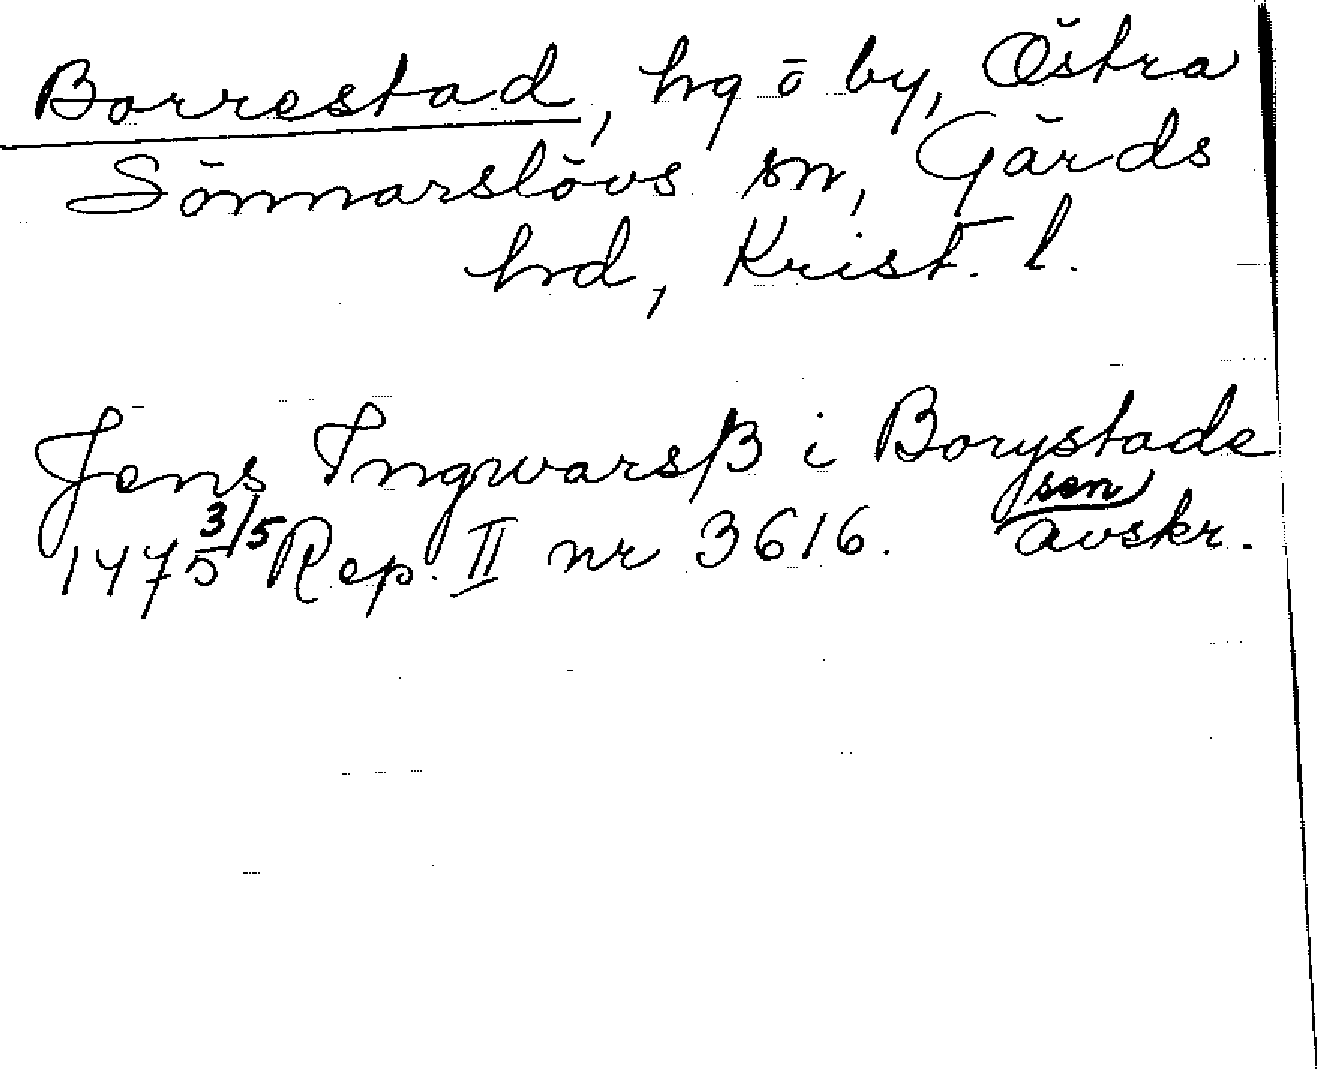 Borrestad, hg o by, Östra
Sönnarslövs sn, Gärds
hrd, Krist. l.
Jens Ingwarsß i Borystade
1475 3/5 Rep. II nr 3616. sen
avskr.